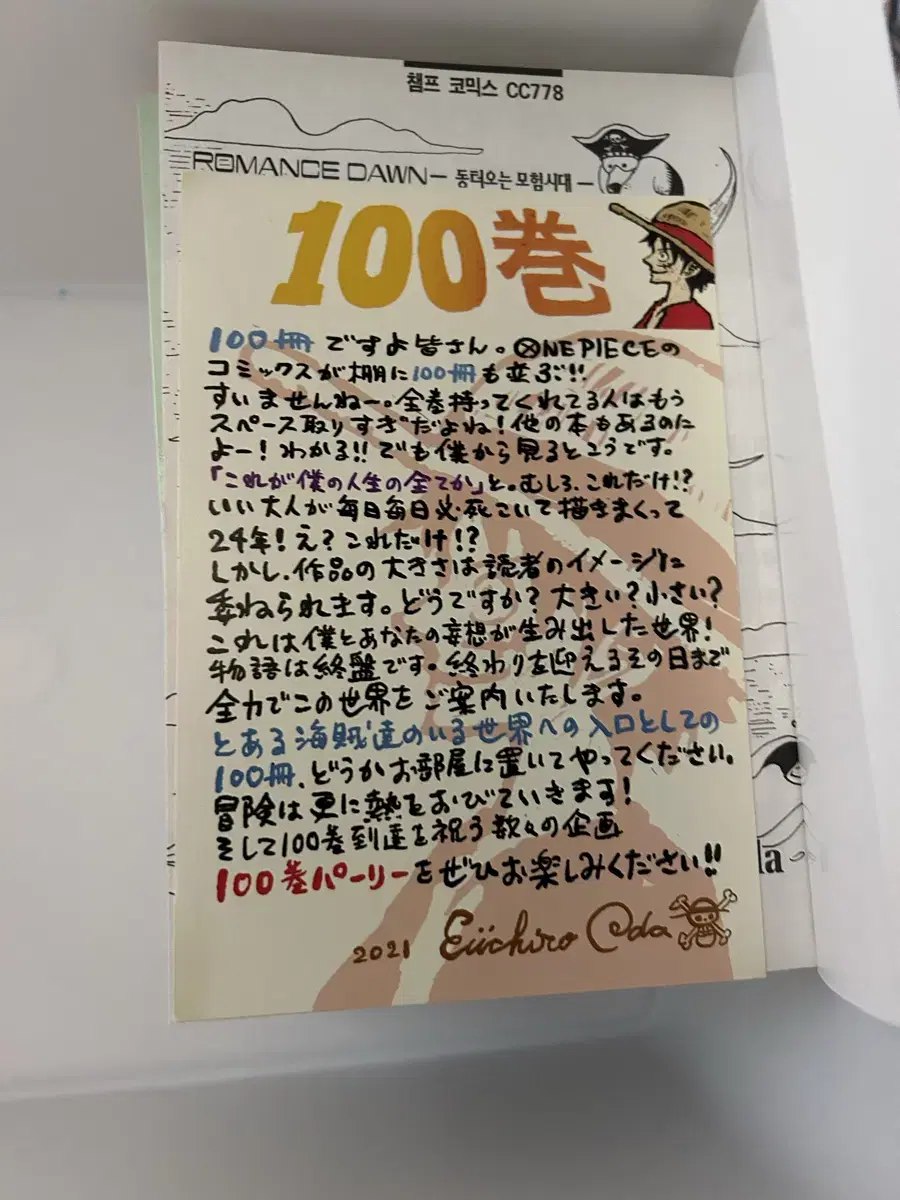 챔프 코믹스 CC778
ROMANCE DAWN — 동터오는 모험시대 —
100巻
100冊ですよ皆さん。ONE PIECEの
コミックスが棚に100冊も並ぶ!!
すいませんねー。全巻持ってくれてる人はもう
スペース取りすぎだよね!他の本もあるのに
よー!わかる!!でも僕から見るとこうです。
「これが僕の人生の全てか」と。むしろ、これだけ!?
いい大人が毎日毎日必死こいて描きまくって
24年!え?これだけ!?
しかし、作品の大きさは読者のイメージに
委ねられます。どうですか?大きい?小さい?
これは僕とあなたの妄想が生み出した世界!
物語は終盤です。終わりを迎えるその日まで
全力でこの世界をご案内いたします。
とある海賊達のいる世界への入口としての
100冊、どうかお部屋に置いてやってください。
冒険は更に熱をおびていきます!
そして100巻到達を祝う数々の企画
100巻パーリーをぜひお楽しみください!!
2021 Eiichiro Oda
da